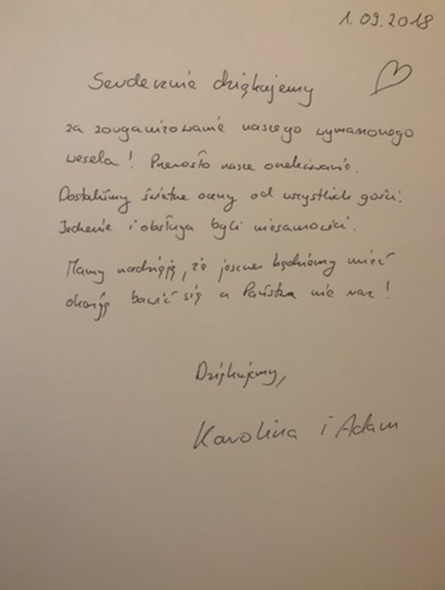 1.09.2018
Serdecznie dziękujemy
za zorganizowanie naszego wymarzonego
wesela! Przerosło nasze oczekiwania.
Dostaliśmy świetne oceny od wszystkich gości.
Jedzenie i obsługa byli niesamowici.
Mamy nadzieję, że jeszcze będziemy mieć
okazję bawić się u Państwa nie raz!
Dziękujemy,
Karolina i Adam